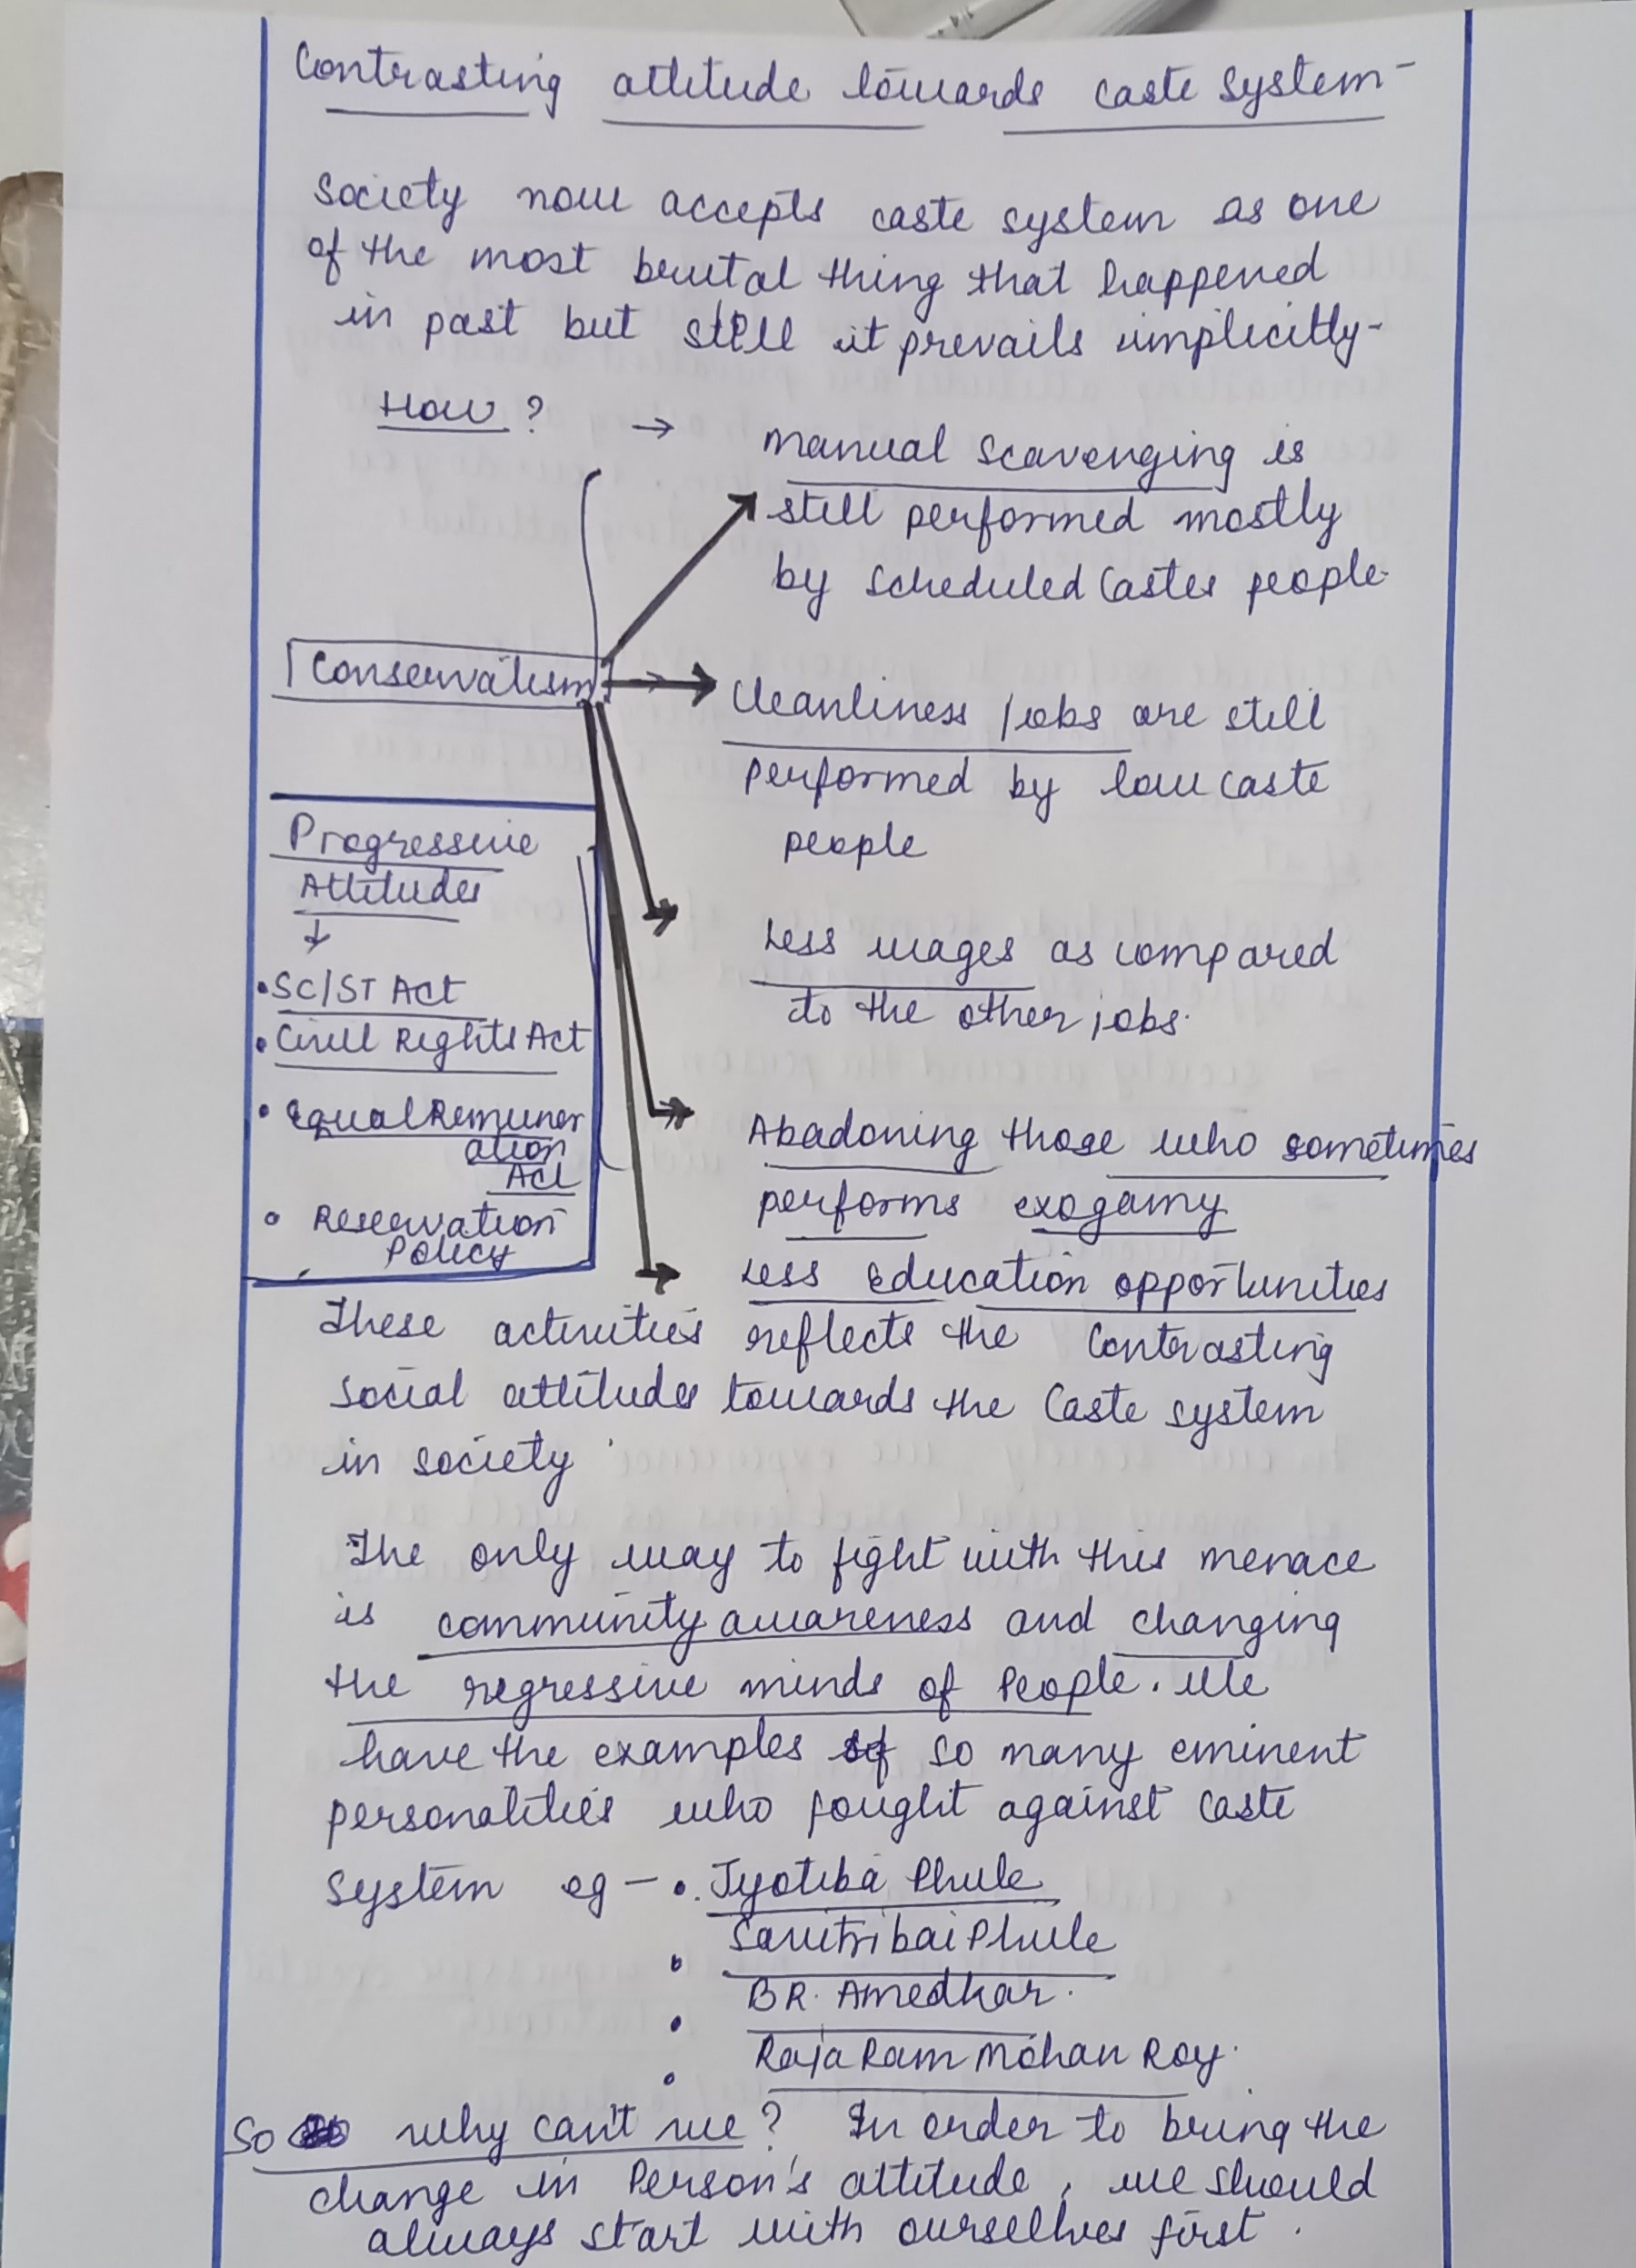 Contrasting attitude towards caste system-
Society now accepts caste system as one
of the most brutal thing that happened
in past but still it prevails implicitly-
How? →
manual scavenging is
still performed mostly
by scheduled castes people
Conservatism
Cleanliness jobs are still
performed by low caste
people
Less wages as compared
to the other jobs.
Abadoning those who sometimes
performs exogamy
Less Education opportunities
Progressive
Attitudes
↓
• SC/ST Act
• Civil Rights Act
• Equal Remuner
ation
Act
• Reservation
Policy
These activities reflects the contrasting
social attitudes towards the Caste system
in society
The only way to fight with this menace
is community awareness and changing
the regressive minds of People. We
have the examples of so many eminent
personalities who fought against caste
system eg - • Jyotiba Phule
• Savitribai Phule
• BR. Amedkar.
• Raja Ram Mohan Roy.
So why can't we? In order to bring the
change in Person's attitude, we should
always start with ourselves first.